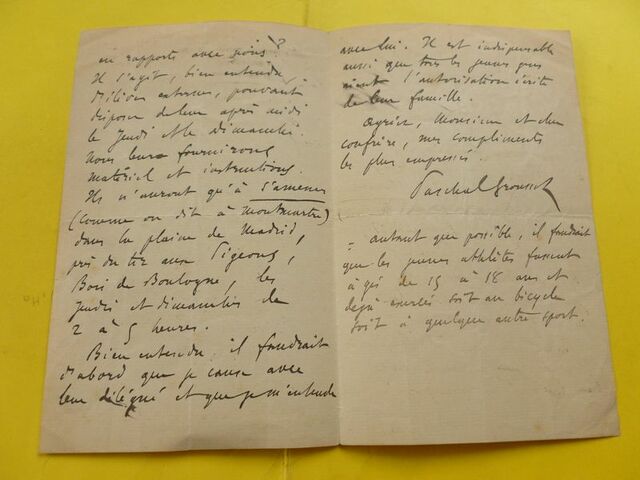 en rapports avec nous ?
Il s'agit, bien entendu,
d'élèves externes, pouvant
disposer de leur après midi
le Jeudi et le dimanche.
Nous leur fournirons
matériel et instructions.
Ils n'auront qu'à s'amener
(comme on dit à Montmartre)
dans la plaine de Madrid,
près du tir aux Pigeons,
Bois de Boulogne, les
Jeudis et dimanches de
2 à 5 heures.
Bien entendu, il faudrait
d'abord que je cause avec
leur délégué et que je m'entende
avec lui. Il est indispensable
aussi que tous les jeunes gens
aient l'autorisation écrite
de leur famille.
Agréez, Monsieur et cher
confrère, mes compliments
les plus empressés.
Paschal Grousset
= autant que possible, il faudrait
que les jeunes athlètes fussent
âgés de 15 à 18 ans et
déjà exercés soit au bicycle
soit à quelque autre sport.